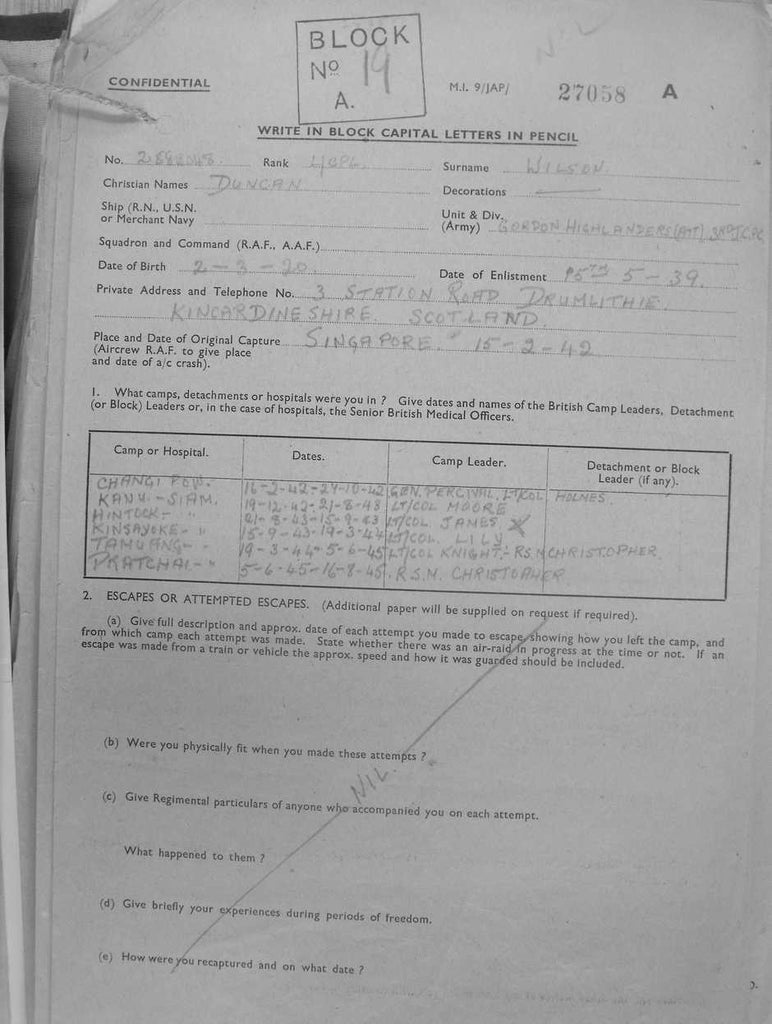 BLOCK
Nº 19
A.
NIL
CONFIDENTIAL
M.I. 9/JAP/ 27058 A
WRITE IN BLOCK CAPITAL LETTERS IN PENCIL
No. Rank L/CPL. Surname WILSON
Christian Names DUNCAN Decorations
Ship (R.N., U.S.N.
or Merchant Navy
Unit & Div.
(Army) GORDON HIGHLANDERS (ATT)
Squadron and Command (R.A.F., A.A.F.)
Date of Birth 2-3-20. Date of Enlistment 15TH 5-39.
Private Address and Telephone No. 3 STATION ROAD DRUMLITHIE.
KINCARDINESHIRE. SCOTLAND.
Place and Date of Original Capture SINGAPORE. 15-2-42
(Aircrew R.A.F. to give place
and date of a/c crash).
1. What camps, detachments or hospitals were you in ? Give dates and names of the British Camp Leaders, Detachment
(or Block) Leaders or, in the case of hospitals, the Senior British Medical Officers.
Camp or Hospital. Dates. Camp Leader. Detachment or Block
Leader (if any).
CHANGI P.O.W. 16-2-42-24-10-42 GEN. PERCIVAL. LT/COL HOLMES.
KANU.-SIAM. 19-12-42-21-8-43 LT/COL MOORE
HINTOCK- " 21-8-43-15-9-43 LT/COL JAMES X
KINSAYOKE- " 15-9-43-19-3-44 LT/COL. LILY
TAMUANG- " 19-3-44-5-6-45 LT/COL KNIGHT.- R.S.M CHRISTOPHER
PRATCHAI- " 5-6-45-16-8-45. R.S.M. CHRISTOPHER
2. ESCAPES OR ATTEMPTED ESCAPES. (Additional paper will be supplied on request if required).
(a) Give full description and approx. date of each attempt you made to escape, showing how you left the camp, and
from which camp each attempt was made. State whether there was an air-raid in progress at the time or not. If an
escape was made from a train or vehicle the approx. speed and how it was guarded should be included.
(b) Were you physically fit when you made these attempts ?
NIL.
(c) Give Regimental particulars of anyone who accompanied you on each attempt.
What happened to them ?
(d) Give briefly your experiences during periods of freedom.
(e) How were you recaptured and on what date ?